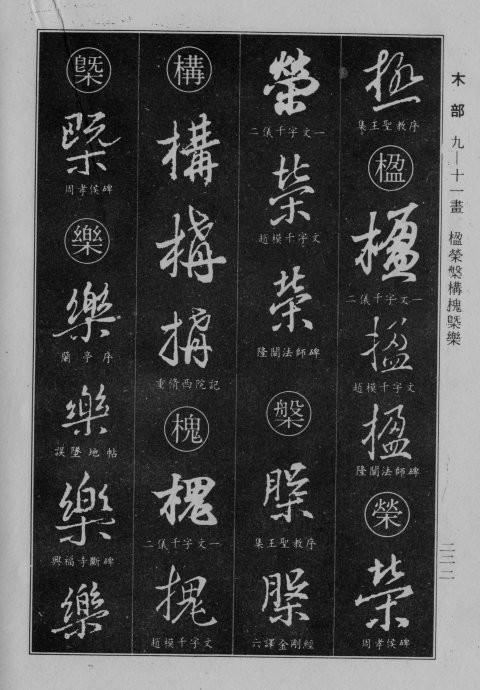 木部 九—十一畫 楹榮槃構槐槩樂
二三二
極
集王聖教序
楹
楹
二儀千字文一
楹
趙模千字文
楹
隆闡法師碑
榮
榮
周孝侯碑
榮
二儀千字文一
榮
趙模千字文
榮
隆闡法師碑
槃
槃
集王聖教序
槃
六譯金剛經
構
構
構
構
重脩西院記
槐
槐
二儀千字文一
槐
趙模千字文
槩
槩
周孝侯碑
樂
樂
蘭亭序
樂
誤墜地帖
樂
興福寺斷碑
樂